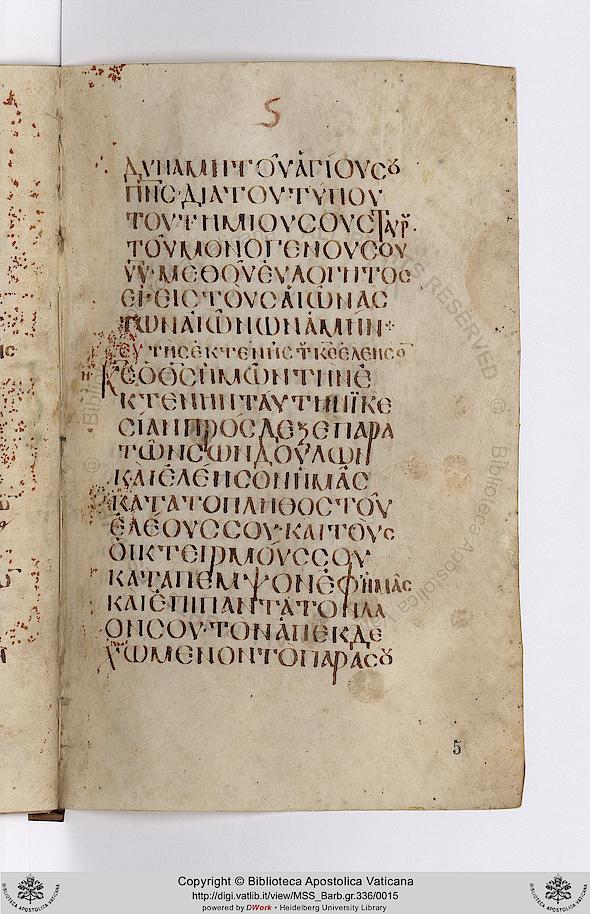 ς
ΔΥΝΑΜΗ ΤΟΥ ἉΓΙΟΥ Σȣ
ΠΝΣ· ΔΙΑ ΤΟΥ ΤΥΠΟΥ
ΤΟΥ ΤΗΜΙΟΥ ΣΟΥ ΣΤΑΥΡ·
ΤΟΥ ΜΟΝΟΓΕΝΟΥΣ ΣΟΥ
ΥΥ· ΜΕΘ ΟΥ ΕΥΛΟΓΗΤΟΣ
ΕΙ· ΕΙΣ ΤΟΥΣ ΑΙΩΝΑΣ
ΤΩΝ ΑΙΩΝΩΝ ΑΜΗΝ
ΕΥ ΤΗΣ ΕΚΤΕΝΗΣ
ΚΕ Ὁ ΘΣ ἩΜΩΝ ΤΗΝ Ἐ
ΚΤΕΝΗΝ ΤΑΥΤΗΝ ΪΚΕ
ΣΙΑΝ ΠΡΟΣΔΕΞΕ ΠΑΡΑ
ΤΩΝ ΣΩΝ ΔΟΥΛΩΝ
ΚΑΙ ΕΛΕΗΣΟΝ ΗΜΑΣ
ΚΑΤΑ ΤΟ ΠΛΗΘΟΣ ΤΟΥ
ΕΛΕΟΥΣ ΣΟΥ· ΚΑΙ ΤΟΥΣ
ΟΙΚΤΕΙΡΜΟΥΣ ΣΟΥ
ΚΑΤΑΠΕΜΨΟΝ ΕΦ ΗΜΑΣ
ΚΑΙ ΕΠΙ ΠΑΝΤΑ ΤΟ ΝΛΑ
ΟΝ ΣΟΥ· ΤΟΝ ΑΠΕΚΔΕ
ΧΩΜΕΝΟΝ ΤΟ ΠΑΡΑ Σȣ
5
Copyright © Biblioteca Apostolica Vaticana
http://digi.vatlib.it/view/MSS_Barb.gr.336/0015
powered by DWork • Heidelberg University Library